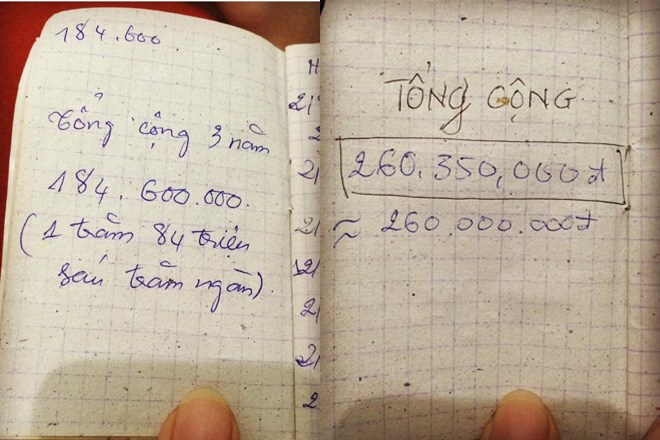 184.600
Tổng cộng 3 năm
184.600.000.
(1 trăm 84 triệu
sáu trăm ngàn)
TỔNG CỘNG
260.350,000đ
≈ 260.000.000đ